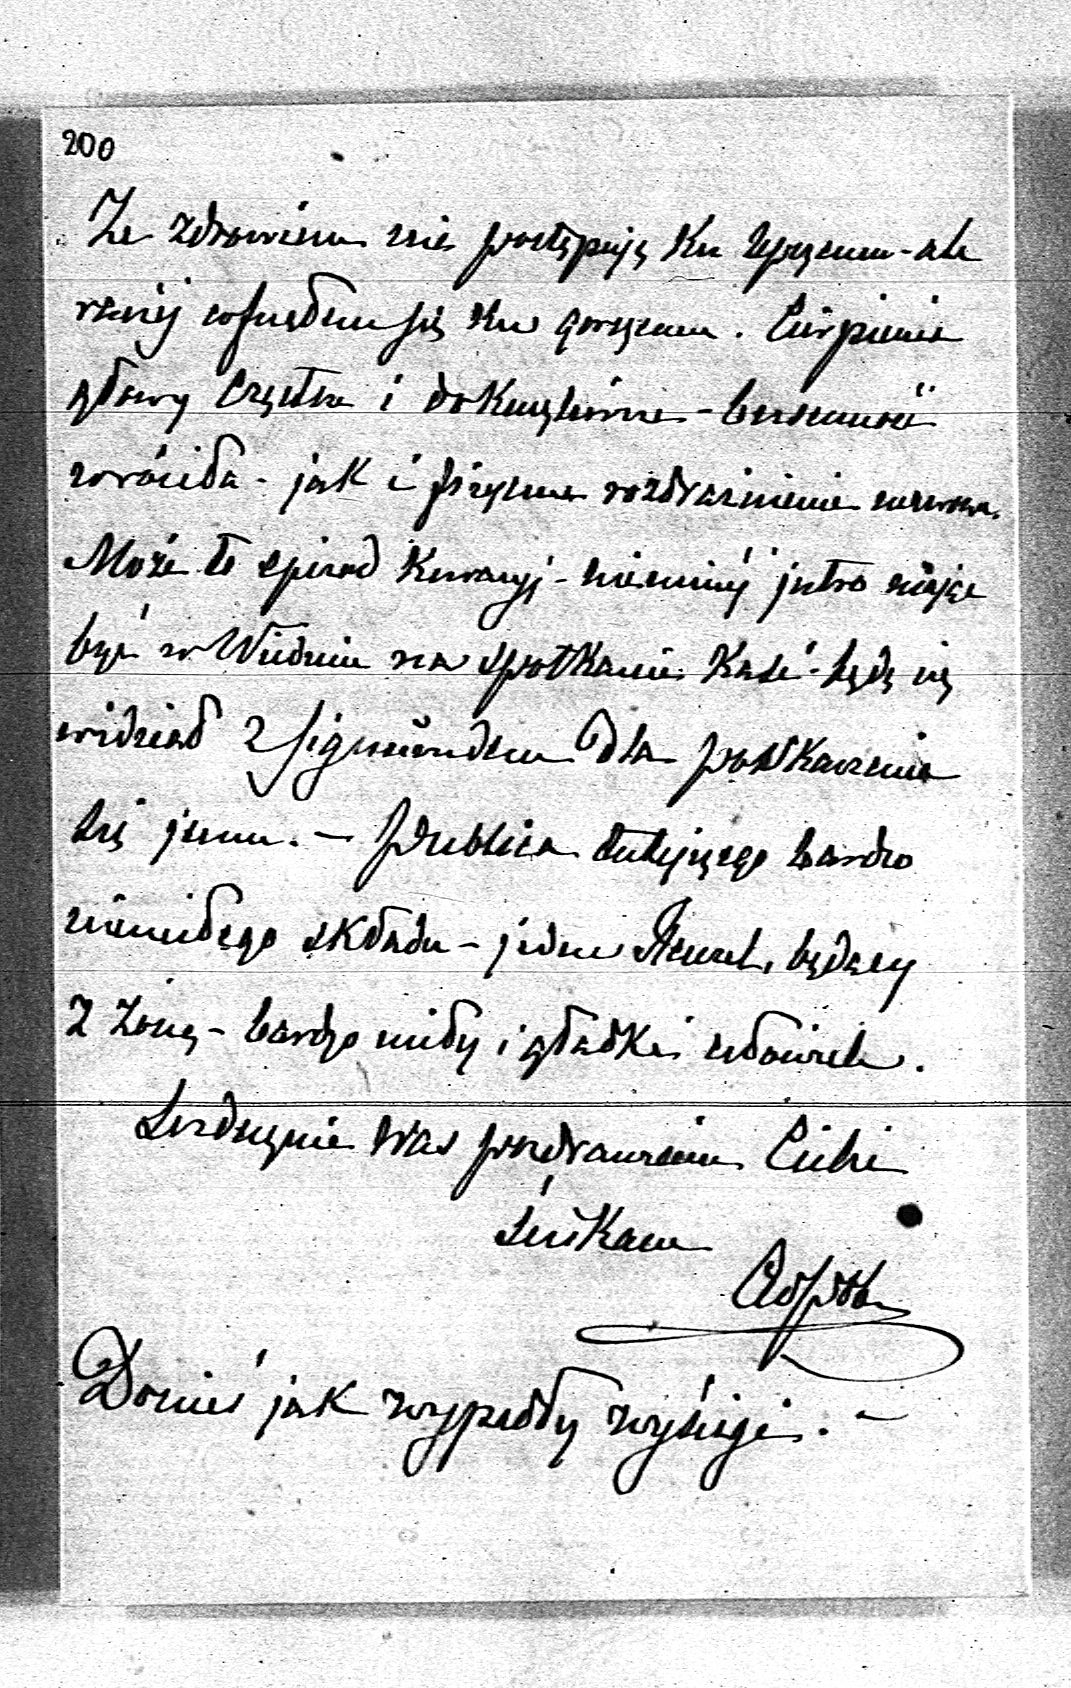 200
Ze zdrowiem nie postępuję ku lepszemu - ale
raczej cofnąłem się ku gorszemu. Cierpienie
głowy częste i dokuczliwe - bezsenność
wróciła - jak i fizyczne rozdrażnienie nerwowe.
Może to epizod kuracyj - niemniej jutro mając
być w Wiedniu na spotkanie Kasi - będę się
widział z Sigmundem dla poskarżenia
się jemu. — Publica tutejszego bardzo
niemiłego składu - jeden będący
z żoną - bardzo miły i gładki człowiek.
Serdecznie Was pozdrawiam Ciebie
ściskam
AdPot
Donieś jak wypadły wyścigi. —